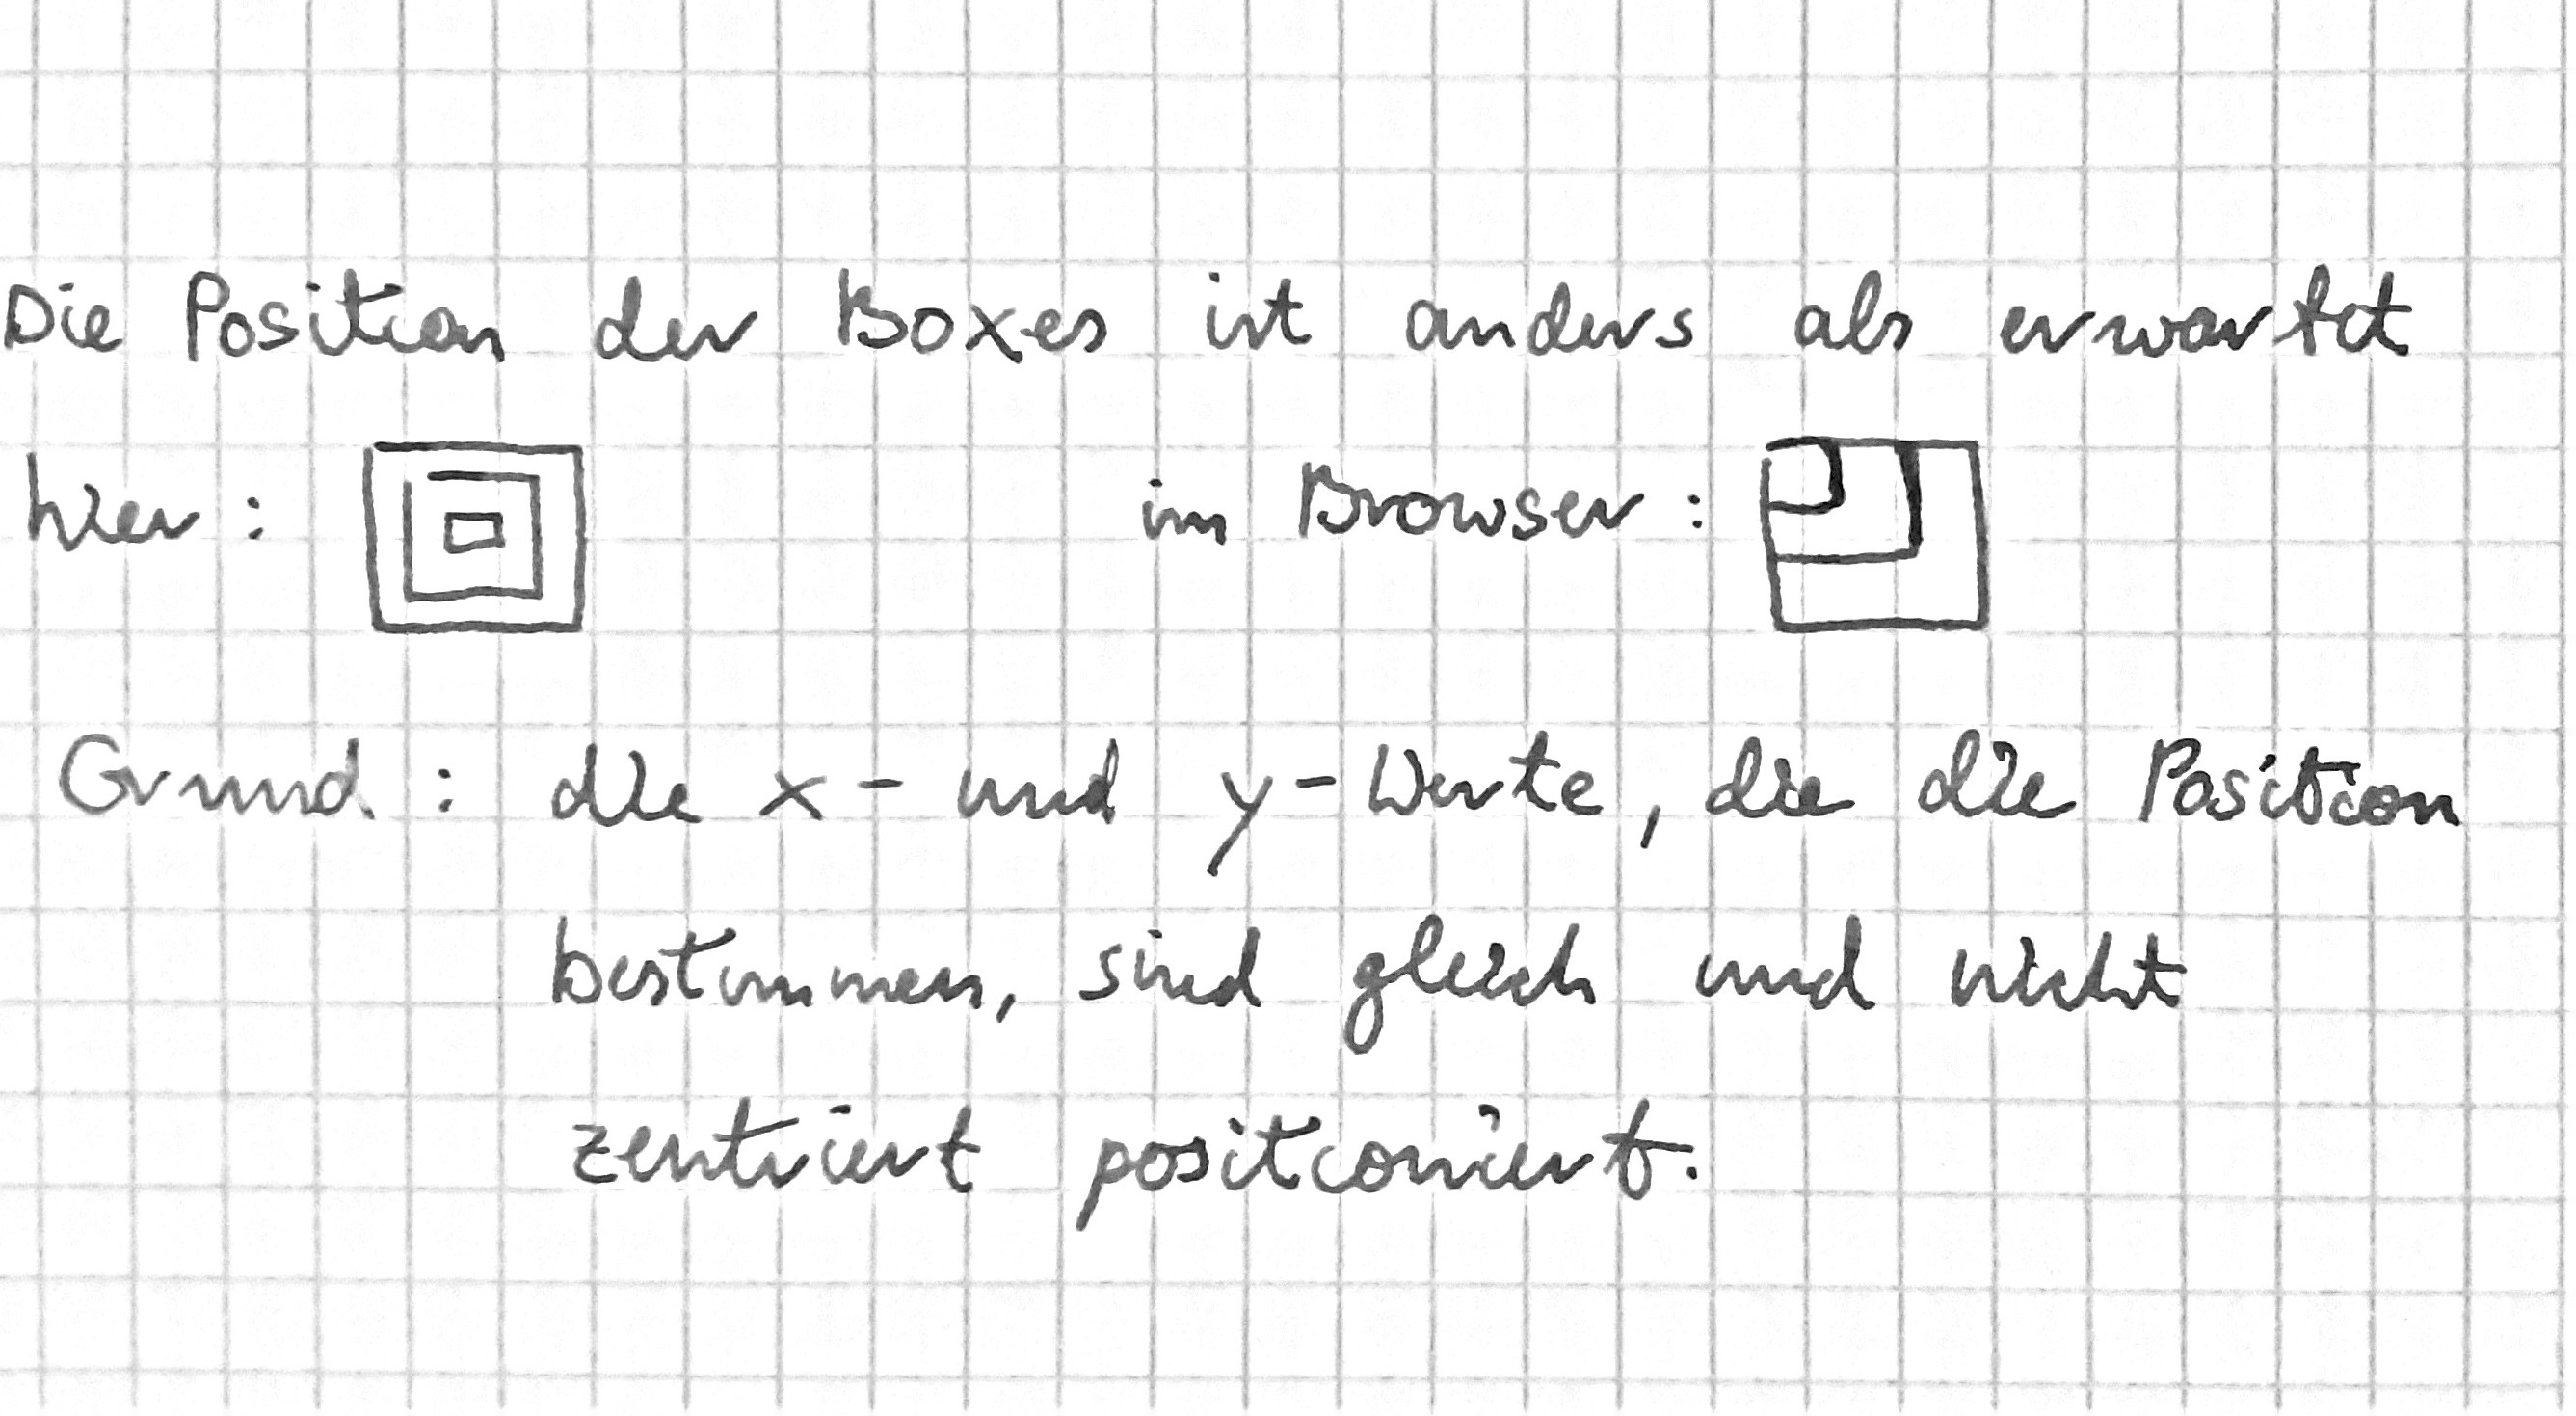 Die Position der Boxes ist anders als erwartet
hier : im Browser :
Grund : die x- und y-Werte, die die Position
bestimmen, sind gleich und nicht
zentriert positioniert.